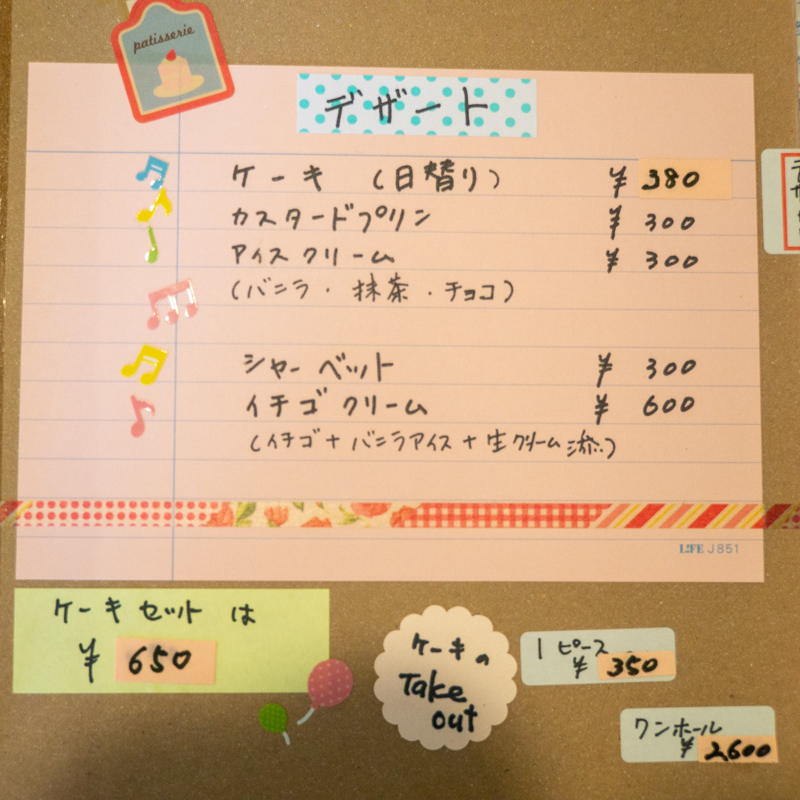 patisserie
デザート
ケーキ (日替り) ¥380
カスタードプリン ¥300
アイスクリーム ¥300
(バニラ・抹茶・チョコ)
シャーベット ¥300
イチゴクリーム ¥600
(イチゴ+バニラアイス+生クリーム添)
LIFE J851
ケーキセットは
¥650
ケーキの
Take
out
1ピース
¥350
ワンホール
¥2,600